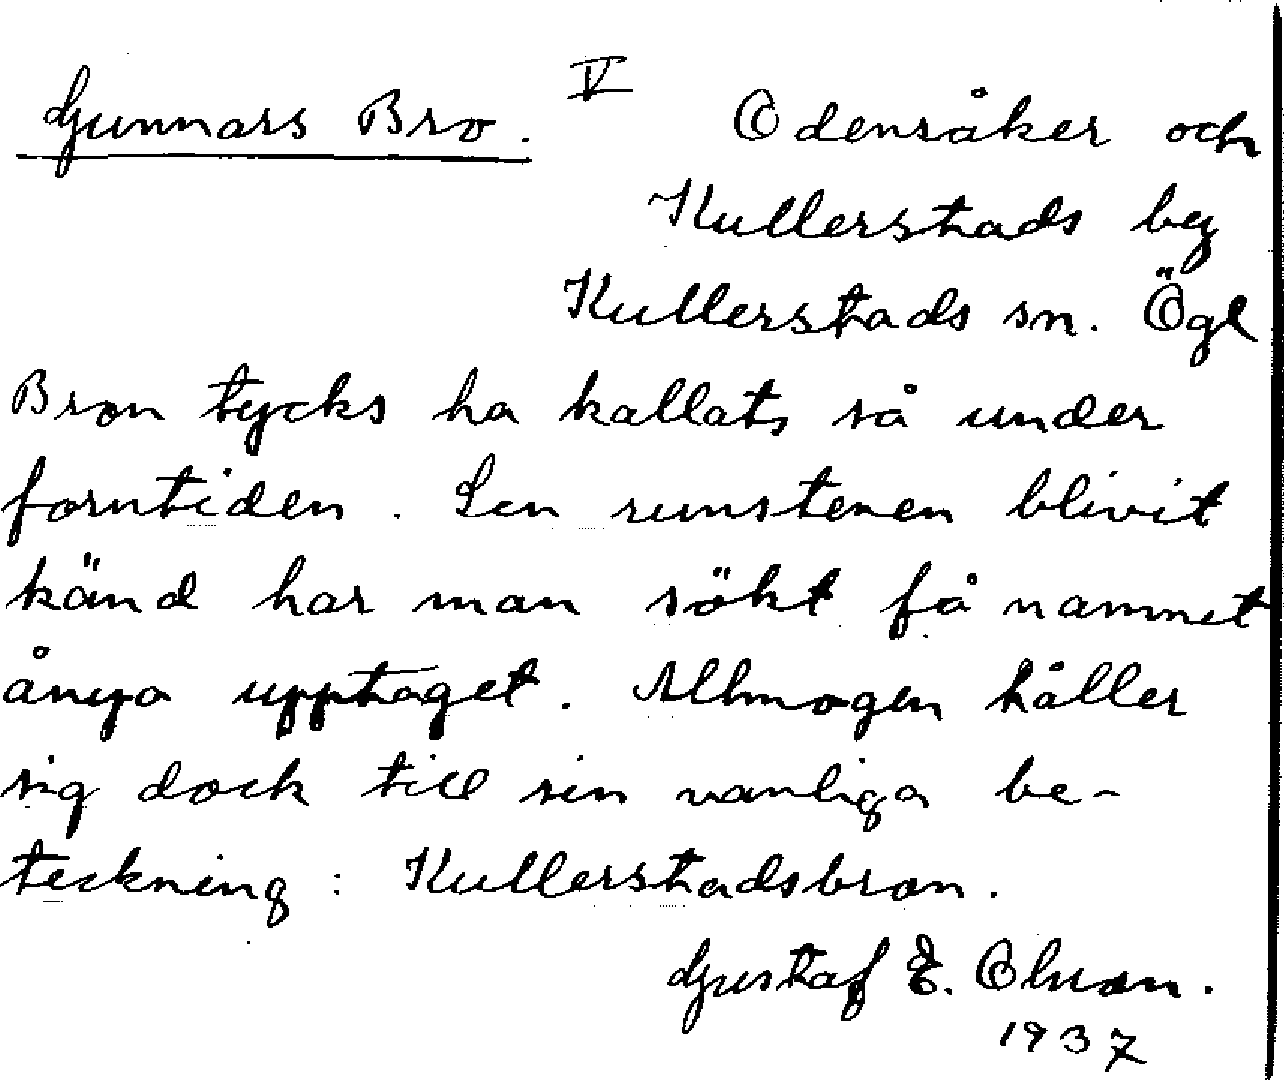 Gunnars Bro. V Odensåker och
Kullerstads by
Kullerstads sn. Ögl
Bron tycks ha kallats så under
forntiden. Sen runstenen blivit
känd har man sökt få namnet
ånyo upptaget. Allmogen håller
sig dock till sin vanliga be-
teckning: Kullerstadsbron.
Gustaf E. Olsson.
1937